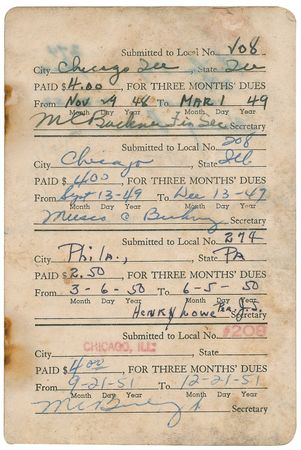 Submitted to Local No. 208
City Chicago Ill , State Ill
PAID $ 4.00 , FOR THREE MONTHS' DUES
From Nov 29 48 To MAR 1 49
Month Day Year Month Day Year
Fin Sec
Secretary
Submitted to Local No. 208
City Chicago State Ill
PAID $ 4.00 , FOR THREE MONTHS' DUES
From Sept 13-49 To Dec 13-49
Month Day Year Month Day Year
Secretary
Submitted to Local No. 274
City Phila., , State PA
PAID $ 2.50 , FOR THREE MONTHS' DUES
From 3-6-50 To 6-5-50
Month Day Year Month Day Year
HENRY Lowe
Secretary
Submitted to Local No. #208
City CHICAGO, ILL. , State
PAID $ 4.00 , FOR THREE MONTHS' DUES
From 9-21-51 To 12-21-51
Month Day Year Month Day Year
Secretary